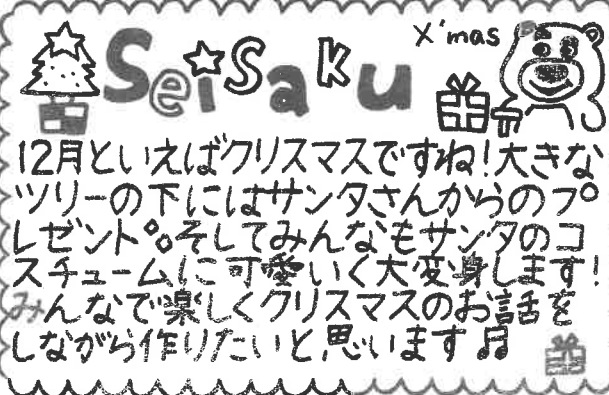 Seisaku
X'mas
12月といえばクリスマスですね！大きな
ツリーの下にはサンタさんからのプ
レゼント°。そしてみんなもサンタのコ
スチュームに可愛いく大変身します！
みんなで楽しくクリスマスのお話を
しながら作りたいと思います♫